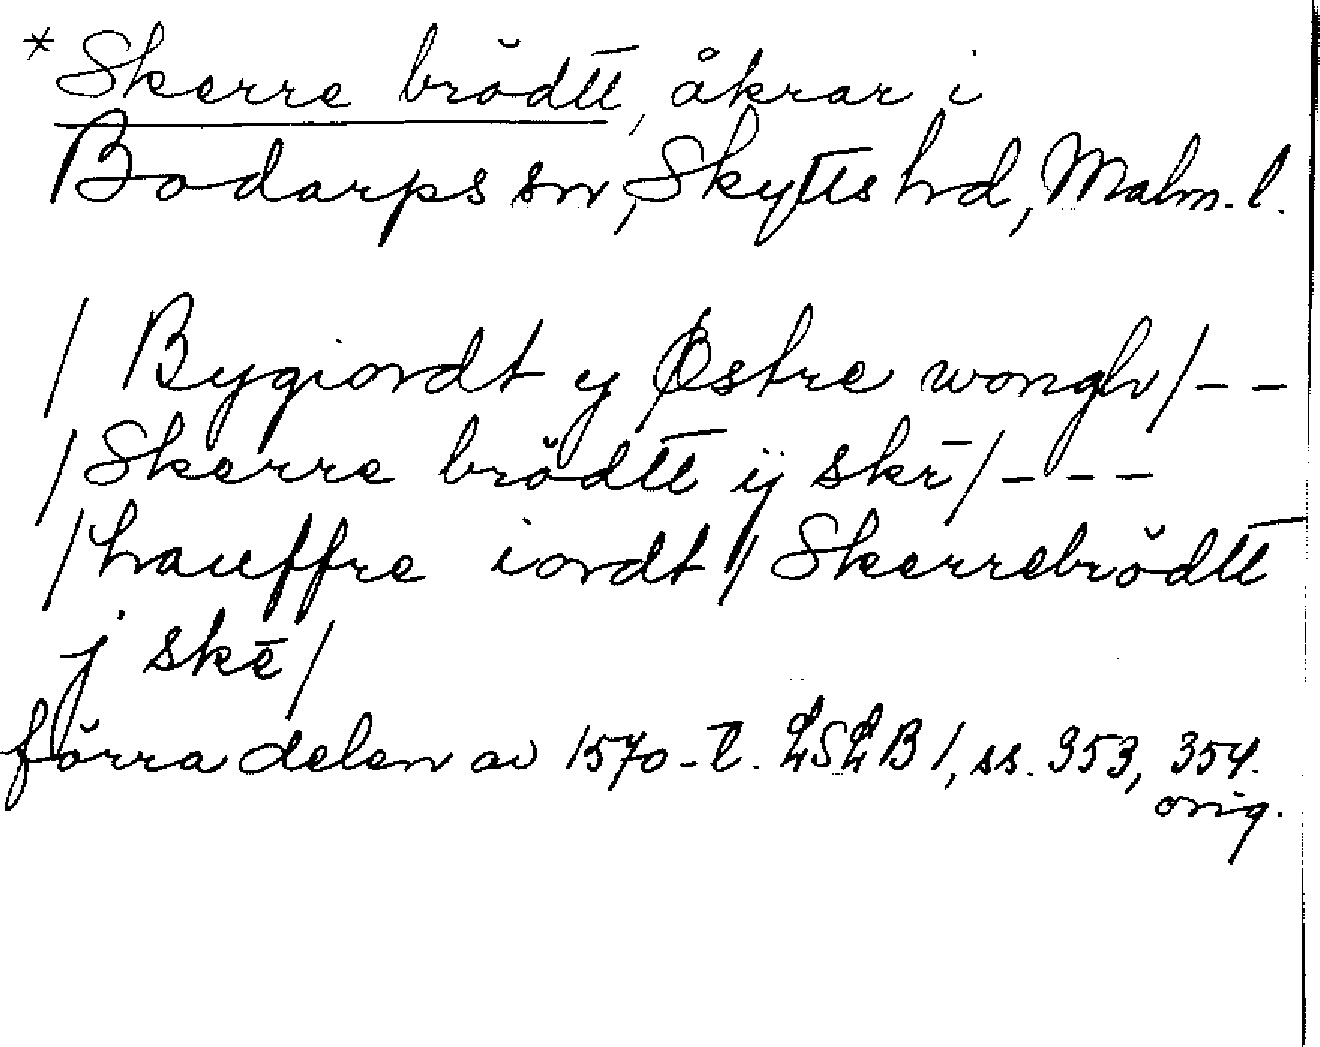 *Skerre brödtt, åkrar i
Bodarps sn, Skytts hd, Malm. l.
/ Bygiordt y Østre wongh/ - -
/Skerre brödtt ij skr̄/ - - -
/hauffre iordt // Skerrebrödtt
j skē/
förra delen av 1570-t. LSLB 1, ss. 353, 354.
orig.